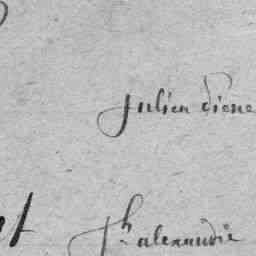 Julien diene
Jh alexandre